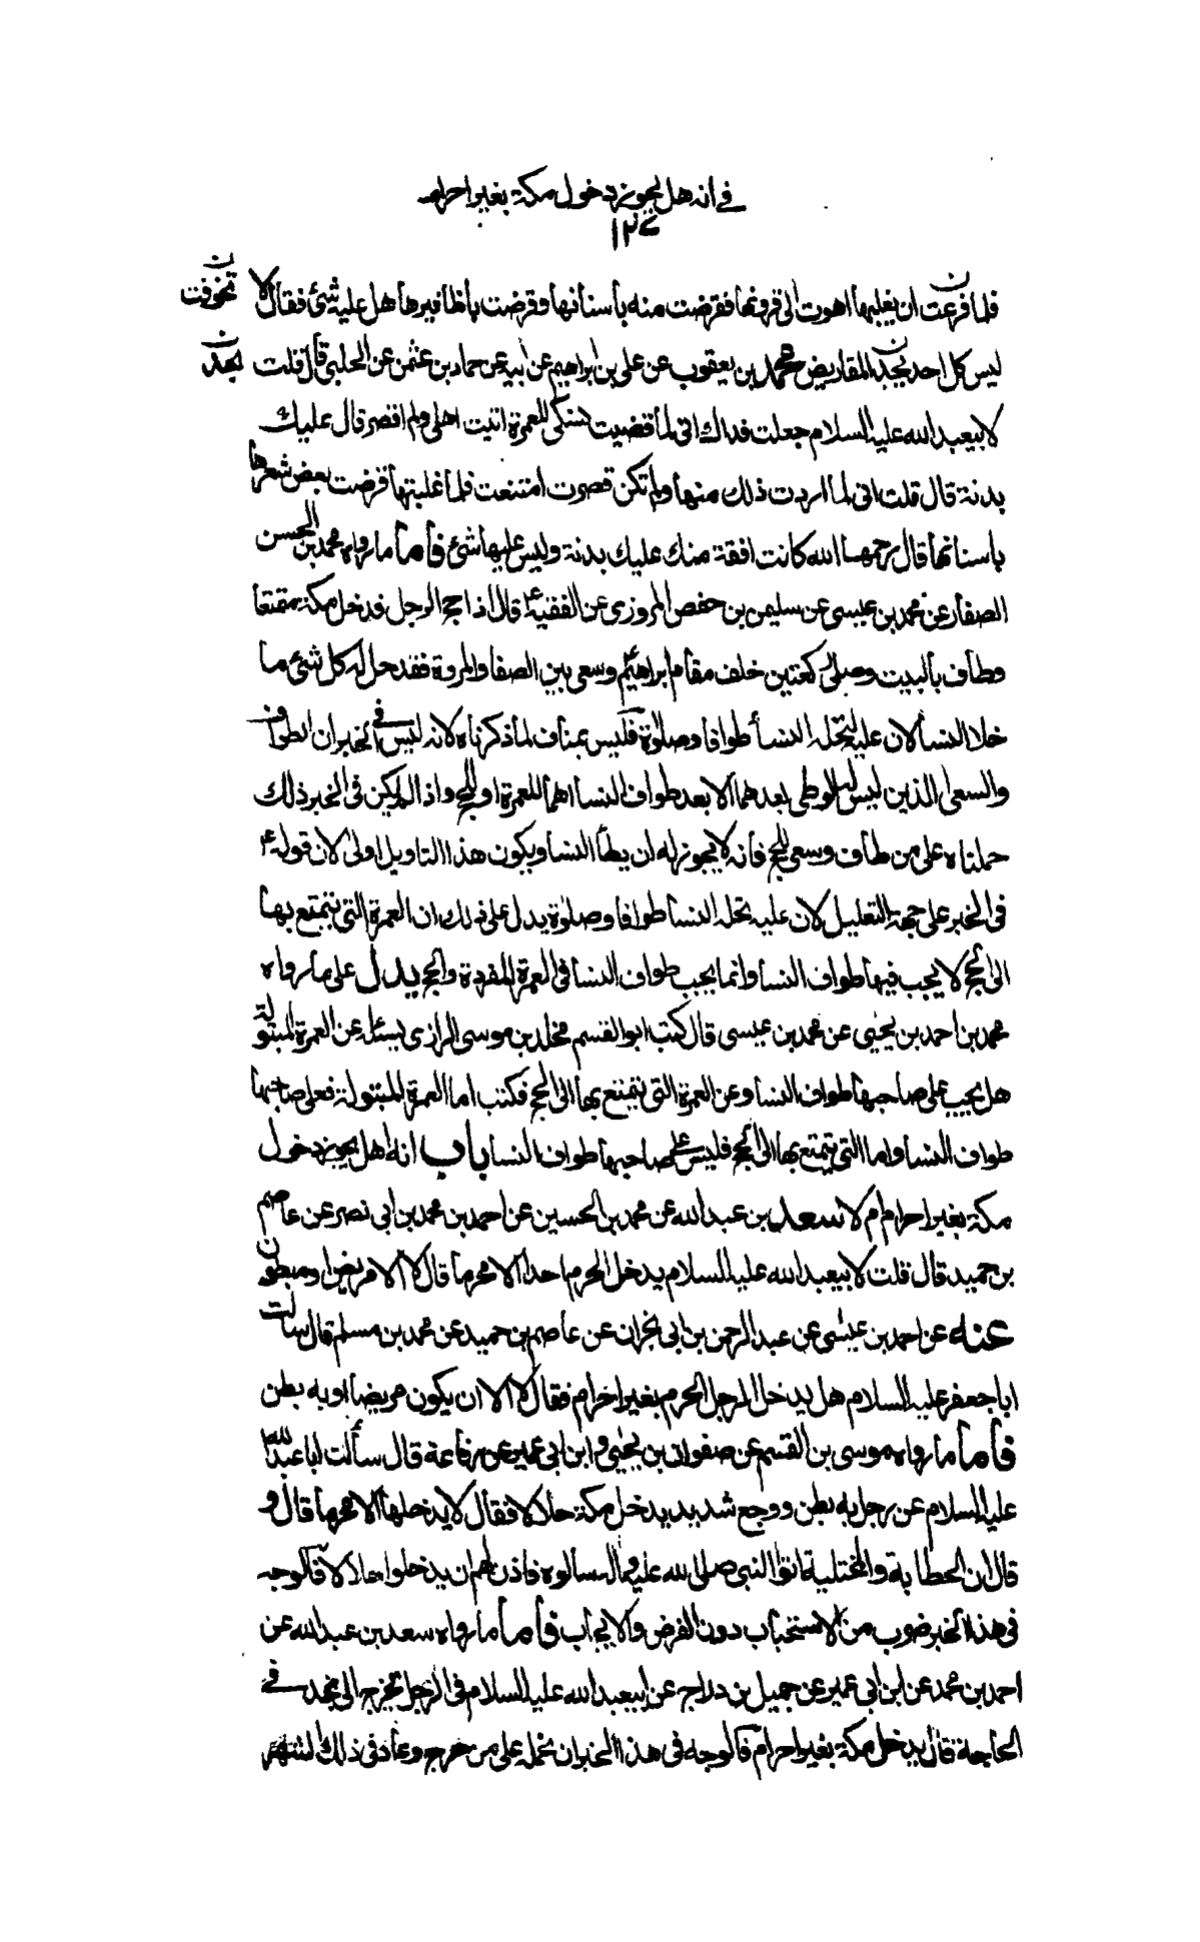 في انه هل يجوز دخول مكة بغير احرام
١٢٧
فلما فزعت ان يغلبها اهوت الى قرونها فقرضت منه باسنانها وقرضت باظافيرها هل عليه شئ فقال لا
ن تخوفت
ليس كل احد يجد المقاريض محمد بن يعقوب عن علي بن ابراهيم عن ابيه عن حماد بن عثمن عن الحلبي قال قلت
ن يجدن
لابيعبد الله عليه السلام جعلت فداك اني لما قضيت نسكي للعمرة اتيت اهلي ولم اقصر قال عليك
بدنة قال قلت اني لما اردت ذلك منها ولم تكن قصرت امتنعت فلما غلبتها قرضت بعض شعرها
باسنانها قال رحمها الله كانت افقة منك عليك بدنة وليس عليها شئ فأما ما رواه محمد بن الحسن
الصفار عن محمد بن عيسى عن سليمن بن حفص المروزى عن الفقيه ع قال اذا حج الرجل فدخل مكة متمتعا
وطاف بالبيت وصلى ركعتين خلف مقام ابراهيم وسعى بين الصفا والمروة فقد حل له كل شئ ما
خلا النسا لان عليه لتحله النسأ طوافا وصلوة فليس بمناف لما ذكرناه لانه ليس في الخبر ان الطواف
والسعى الذين ليس له الوطى بعدهما الا بعد طواف النسا اهما للعمرة او للحج واذا لم يكن في الخبر ذلك
حملناه على من طاف وسعى للحج فانه لا يجوز له ان يطأ النسا ويكون هذا التاويل اولى لان قوله ع
في الخبر على جهة التعليل لان عليه تحله النسا طوافا وصلوة يدل على ذلك ان العمرة التي يتمتع بها
الى الحج لا يجب فيها طواف النسا وانما يجب طواف النسا في العمرة المفردة والحج يدل على ما رواه
محمد بن احمد بن يحيى عن محمد بن عيسى قال كتب ابو القسم مخلد بن موسى الرازى يسئله عن العمرة المبتولة
هل يجب على صاحبها طواف النسا وعن العمرة التي يتمتع بها الى الحج فكتب اما العمرة المبتولة فعلى صاحبها
طواف النسا واما التي يتمتع بها الى الحج فليس على صاحبها طواف النسا باب انه هل يجوز دخول
مكة بغير احرام ام لا سعد بن عبد الله عن محمد بن الحسين عن احمد بن محمد بن ابي نصر عن عاصم
بن حميد قال قلت لابيعبد الله عليه السلام يدخل الحرم احد الا محرما قال لا الا مريض او مبطون
عنه عن احمد بن عيسى عن عبد الرحمن بن ابي نجران عن عاصم بن حميد عن محمد بن مسلم قال سالت
ابا جعفر عليه السلام هل يدخل الرجل الحرم بغير احرام فقال لا الا ان يكون مريضا او به بطن
فأما ما رواه موسى بن القسم عن صفوان بن يحيى وابن ابي عمير عن رفاعة قال سألت ابا عبد الله
عليه السلام عن رجل به بطن ووجع شديد يدخل مكة حلالا فقال لا يدخلها الا محرما قال و
قال ان الحطابة والمختلية اتوا النبي صلى الله عليه واله سالوه فاذن لهم ان يدخلوا حلالا فالوجه
في هذا الخبر ضرب من الاستحباب دون الفرض والايجاب فأما ما رواه سعد بن عبد الله عن
احمد بن محمد عن ابن ابي عمير عن جميل بن دراج عن ابيعبد الله عليه السلام في الرجل يخرج الى نجد في
الحاجة قال يدخل مكة بغير احرام فالوجه في هذا الخبر ان نحمله على من خرج وعاد في ذلك الشهر